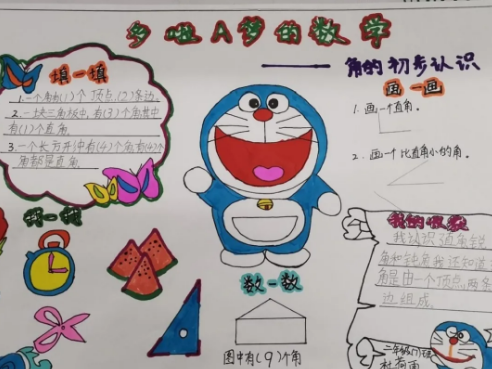 多啦A梦的数学
——角的初步认识
填一填
1.一个角有(1)个顶点,(2)条边
2.一块三角板中,有(3)个角,其中
有(1)个直角
3.一个长方形中有(4)个角,有(4)个
角都是直角
画一画
1.画一个直角。
2.画一个比直角小的角。
找一找
数一数
图中有(9)个角
我的收获
我认识直角锐
角和钝角我还知道
角是由一个顶点,两条
边组成
二年级